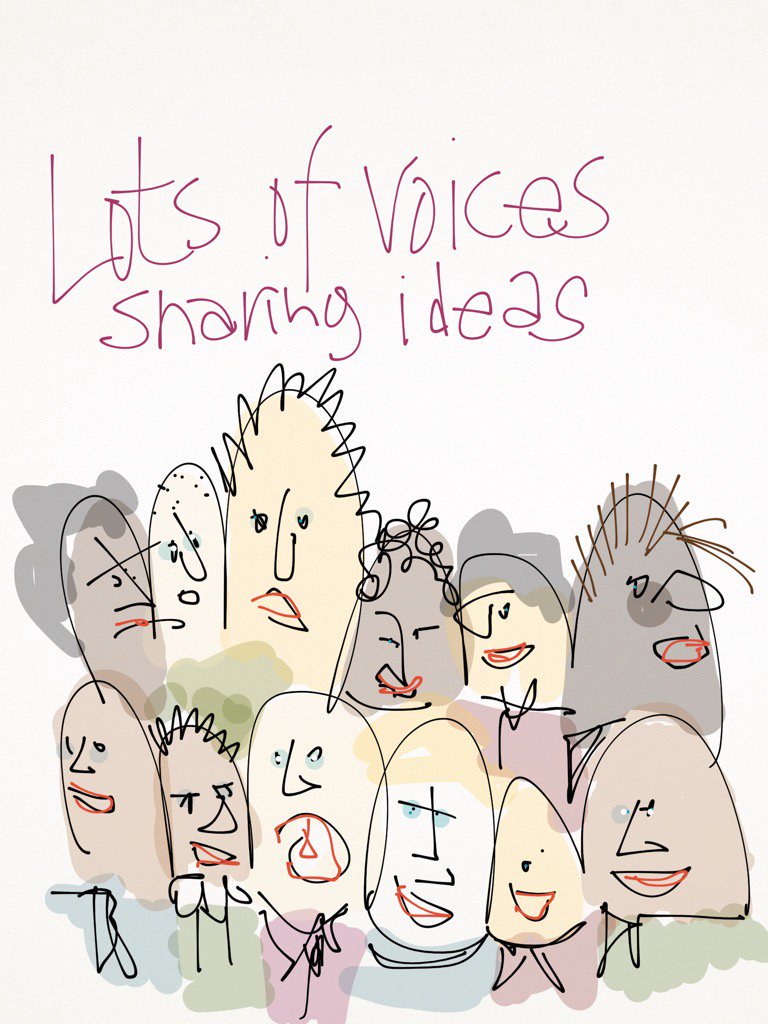 Lots of voices
sharing ideas